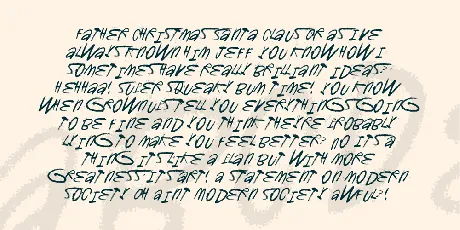 FATHER CHRISTMAS SANTA CLAUS OR AS I'VE
ALWAYS KNOWN HIM JEFF YOU KNOW HOW I
SOMETIMES HAVE REALLY BRILLIANT IDEAS?
HEHHAA! SUPER SQUEAKY BUM TIME! YOU KNOW
WHEN GROWNUPS TELL YOU EVERYTHING'S GOING
TO BE FINE AND YOU THINK THEY'RE PROBABLY
LYING TO MAKE YOU FEEL BETTER? NO IT'S A
THING IT'S LIKE A PLAN BUT WITH MORE
GREATNESS IT'S ART! A STATEMENT ON MODERN
SOCIETY OH AIN'T MODERN SOCIETY AWFUL?!